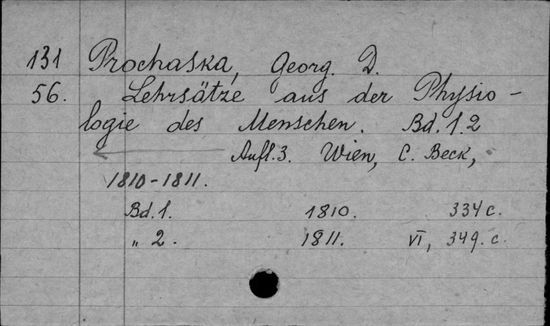 131 Prochaska, Georg. D.
56. Lehrsätze aus der Physio-
logie des Menschen. Bd. 1.2
Aufl. 3. Wien, C. Beck,
1810-1811.
Bd. 1. 1810. 334 c.
„ 2. 1811. VI, 349. c.